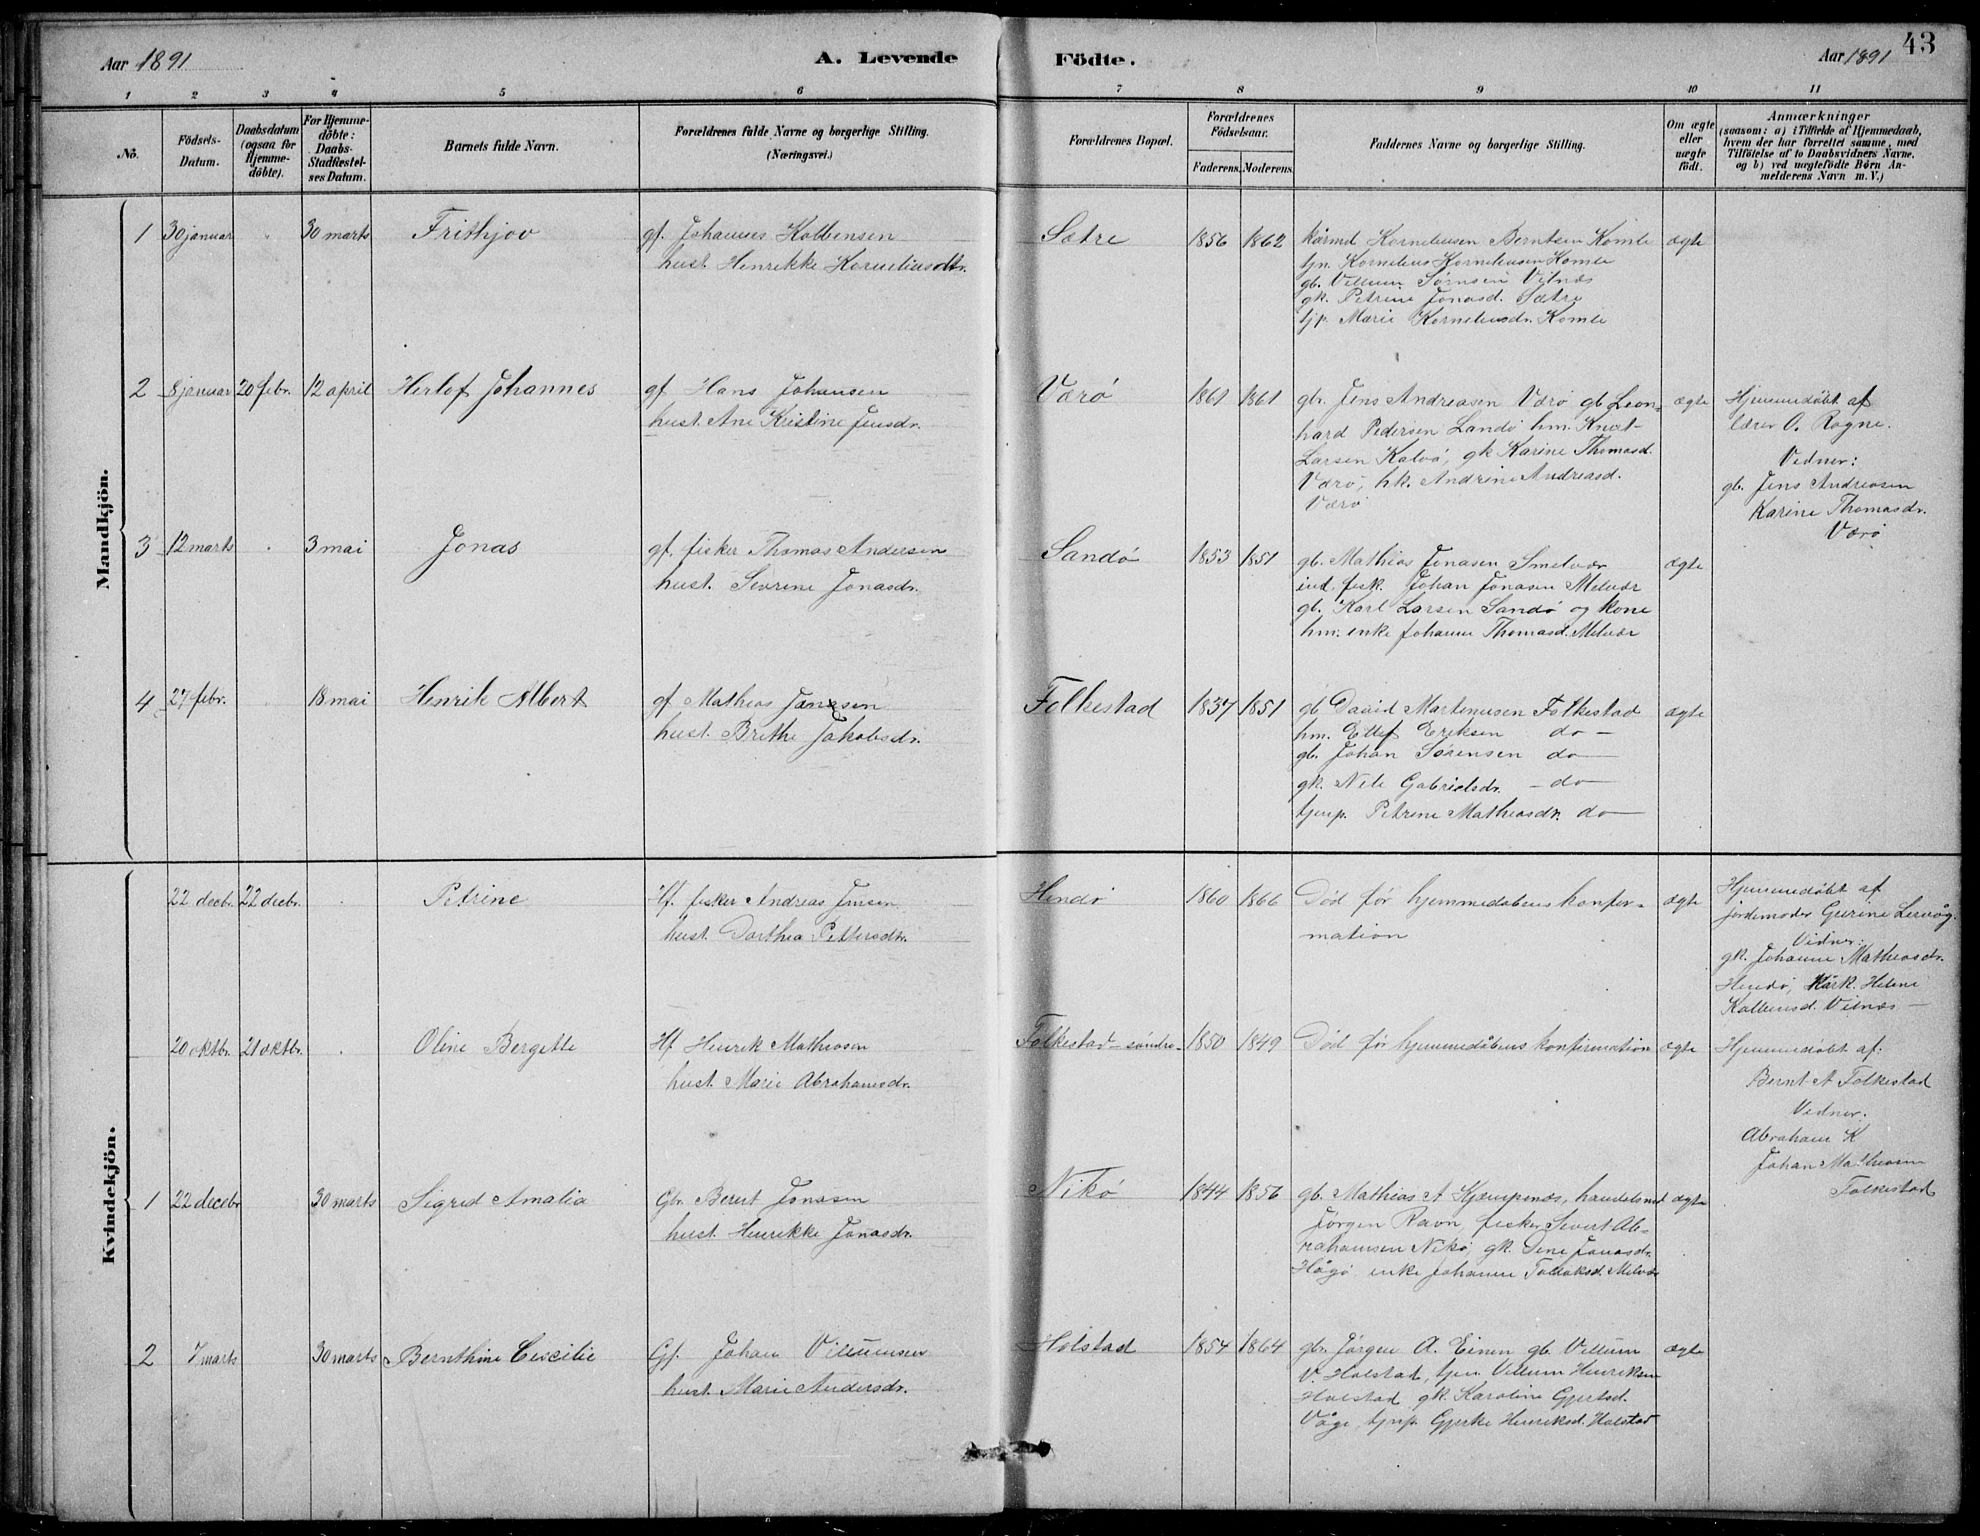 Aar 1891
A. Levende
Födte.
Aar 1891
43
1 2 3 4 5 6 7 8 9 10 11
No.
Fødsels-Datum.
Daabsdatum (ogsaa for Hjemme-döbte).
For Hjemme-döbte: Daabs-Stadfæstel-ses Datum.
Barnets fulde Navn.
Forældrenes fulde Navne og borgerlige Stilling.
(Næringsvei.)
Forældrenes Bopæl.
Forældrenes Födselsaar.
Faderens. Moderens.
Faddernes Navne og borgerlige Stilling.
Om ægte eller uægte födt.
Anmærkninger
(saasom: a) i Tilfælde af Hjemmedaab,
hvem der har forrettet samme, med
Tilföielse af to Daabsvidners Navne,
og b) ved uægtefødte Börn An-
melderens Navn m. V.)
Mandkjön.
1 30 januar 30 marts Frithjov
gf. Johannes Kolbensen
hust. Henrikke Korneliusdtr.
Sætre 1856 1862
kårmd Korneliusen Berntsen Komle
tjn. Kornelius Korneliusen Komle
gb. Villum Sørnsen Vilnæs
gk. Petrine Jonasd. Sætre
tjp. Marie Korneliusdr. Komle
ægte
2 8 januar 20 febr. 12 april Herlof Johannes
gf. Hans Johansen
hust. Ane Kristine Jensdr.
Værø 1861 1861
gbr. Jens Andreasen Værø gb. Leon-
hard Pedersen Landø hm. Knut
Larsen Kalvø, gk Karine Thomasd.
Værø, hk. Andrine Andreasd.
Værø
ægte
Hjemmedøbt af
lærer O. Rogne.
Vidner:
gb. Jens Andreasen
Karine Thomasdr.
Værø
3 12 marts 3 mai Jonas
gf. fisker Thomas Andersen
hust. Severine Jonasdr.
Sandø 1853 1851
gb. Mathias Jonasen Smelvær
ind. fisk. Johan Jonasen Melvær
gb. Karl Larsen Sandø og kone
hm. enke Johanne Thomasd. Melvær
ægte
4 27 febr. 18 mai Henrik Albert
gf. Mathias Jansen
hust. Brithe Jakobsdr.
Folkestad 1837 1851
gb David Martenusen Folkestad
hm. Ellef Eriksen do -
gb. Johan Sørensen do -
gk. Nele Gabrielsdr. - do -
tjenp. Petrine Mathiasdr. do -
ægte
Kvindekjön.
22 decbr. 22 decbr. Petrine
Hf. fisker Andreas Jensen
hust. Dorthea Pettersdtr.
Hendø 1860 1866
Død før hjemmedåbens konfir-
mation
ægte
Hjemmedøbt af
jordemoder Gurine Lervåg.
Vidner:
gk. Johanne Mathiasdr.
Hendø, Kårk. Helene
Kolbensd. Vilnæs -
20 oktbr. 21 oktbr. Oline Bergitte
Hf. Henrik Mathiasen
hust. Marie Abrahamsdr.
Folkestad-søndre 1850 1849
Død før hjemmedåbens konfirmation
ægte
Hjemmedøbt af:
Bernt A Folkestad
Vidner.
Abraham K
Johan Mathiasen
Folkestad
1 22 decebr 30 marts Sigred Amalia
Gbr. Berent Jonasen
hust. Henrikke Jonasdr.
Nikø 1844 1856
gb. Mathias A Kjempenæs, handelsmd
Jørgen Ravn, fisker Sivert Ab-
rahamsen Nikø, gk. Sine Jonasdr.
Hågø enke Johanne Melvær
ægte
2 7 marts 30 marts Bernthine Cecilie
Gf. Johan Villumsen
hust. Marie Andersdr.
Holstad 1854 1864
gbr. Jørgen A. Einen gb. Villum
V. Holstad, tjen. Villum Henriksen
Holstad gk. Karoline Gjertsd.
Våge tjenp. Gjerke Henriksd. Holstad
ægte